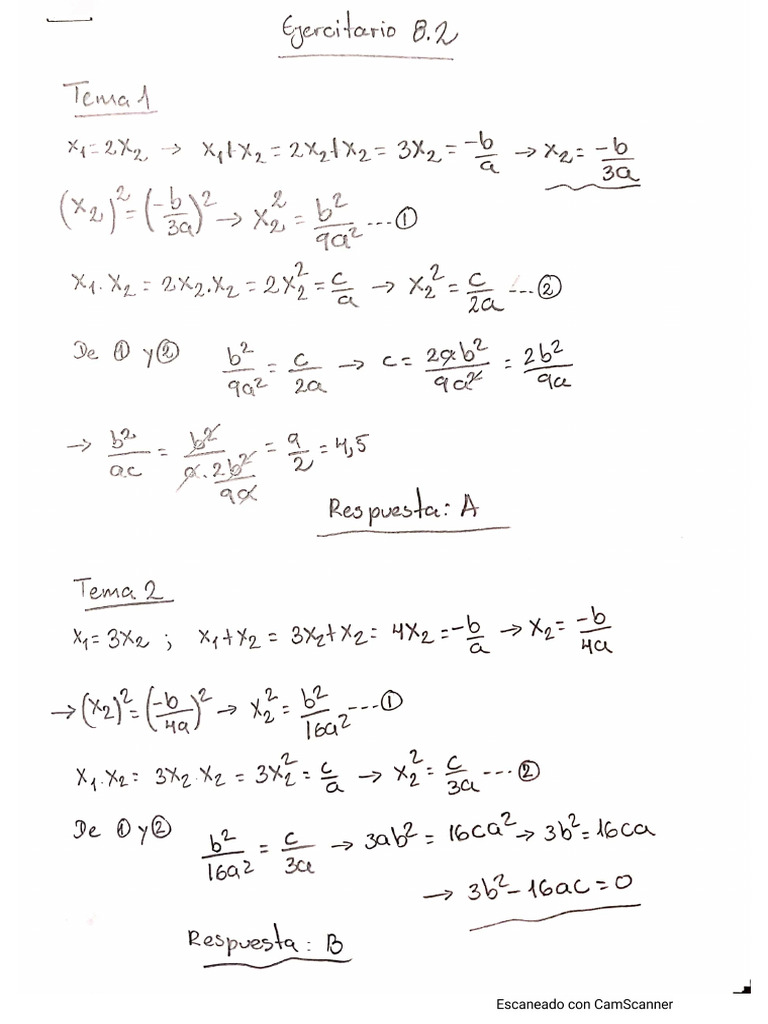 Ejercitario 8.2
Tema 1
x₁=2x₂ → x₁+x₂ = 2x₂+x₂ = 3x₂ = -b/a → x₂ = -b/3a
(x₂)² = (-b/3a)² → x₂² = b²/9a² ---- ①
x₁.x₂ = 2x₂.x₂ = 2x₂² = c/a → x₂² = c/2a ---- ②
De ① y ② b²/9a² = c/2a → c = 2ab²/9a² = 2b²/9a
→ b²/ac = b²/(a.2b²/9a) = 9/2 = 4,5
Respuesta: A
Tema 2
x₁=3x₂ ; x₁+x₂ = 3x₂+x₂ = 4x₂ = -b/a → x₂ = -b/4a
→ (x₂)² = (-b/4a)² → x₂² = b²/16a² ---- ①
x₁.x₂ = 3x₂.x₂ = 3x₂² = c/a → x₂² = c/3a ---- ②
De ① y ② b²/16a² = c/3a → 3ab² = 16ca² → 3b² = 16ca
→ 3b² - 16ac = 0
Respuesta: B
Escaneado con CamScanner